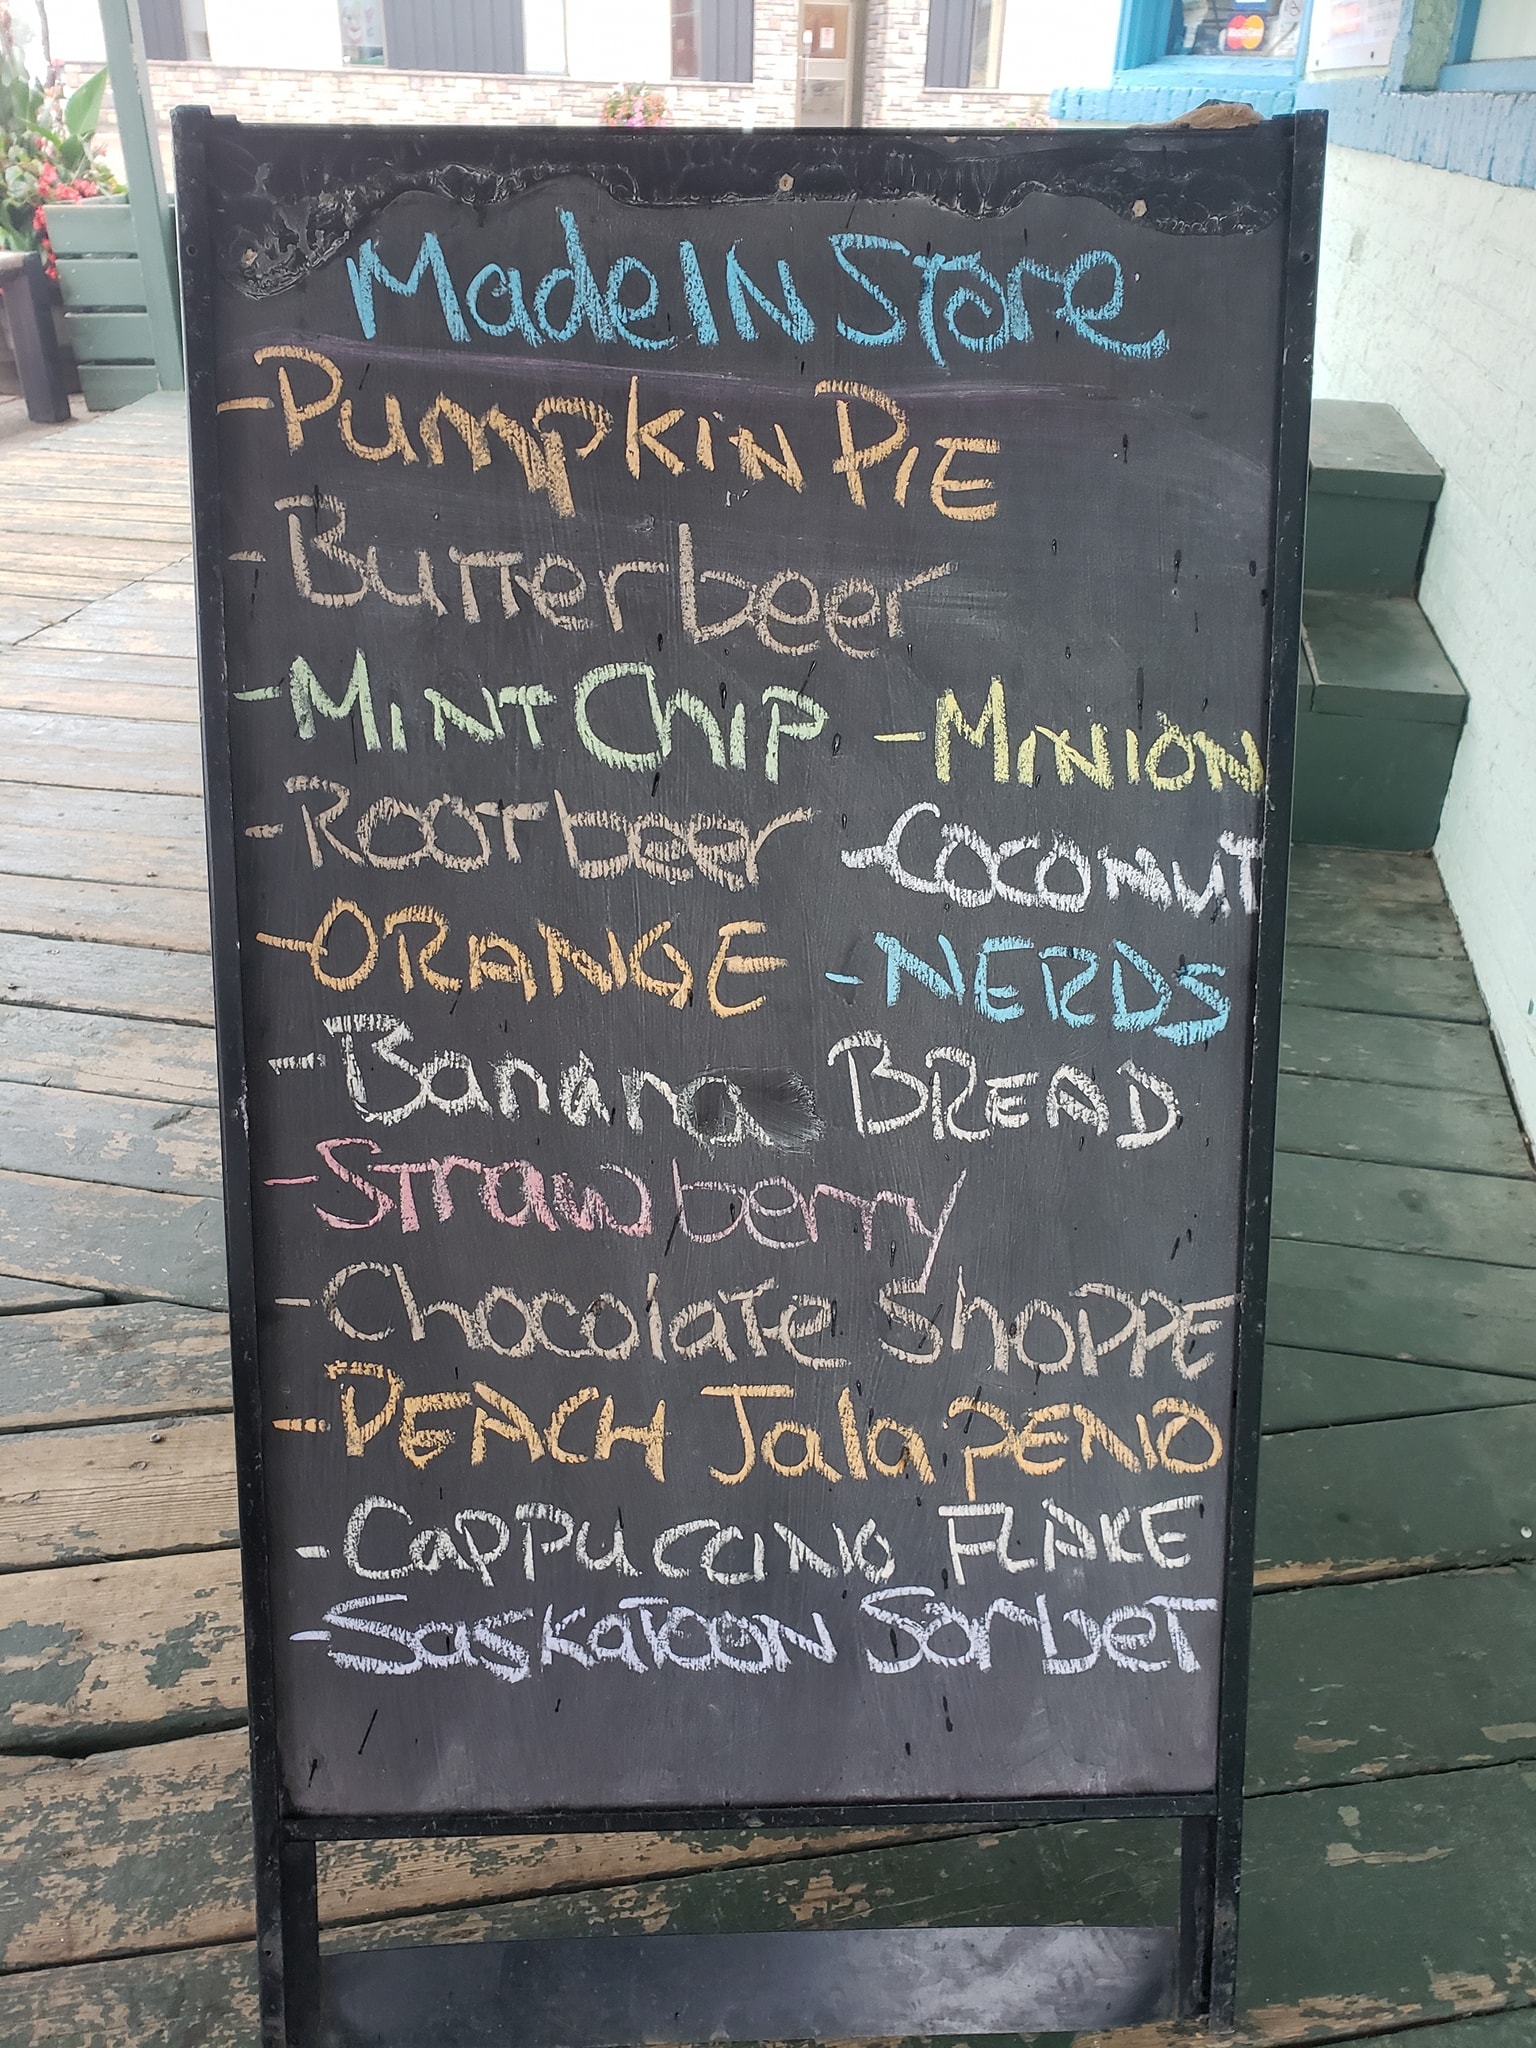 MadeIN Store
-PumpkiN PiE
-Butterbeer
-MiNT ChIP -MINION
-ROOTbeer -COCONUT
-ORANGE -NERDS
-Banana BREAD
-Strawberry
-Chocolate ShOPPE
-PEACH JalaPENO
-CaPPUCCINO FLAKE
-SaskaTOON SorbeT
MasterCard